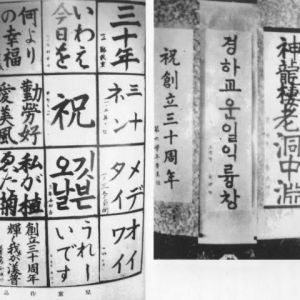 三十年
いわえ
今日を
何より
の幸福
祝
勤労好
愛美風
メデタイ
オイワイ
깃븐
오날
私が植
ゑた菊
うれしいです
創立三十周年
神龍棲老洞中淵
경하교운일익륭창
祝創立三十周年